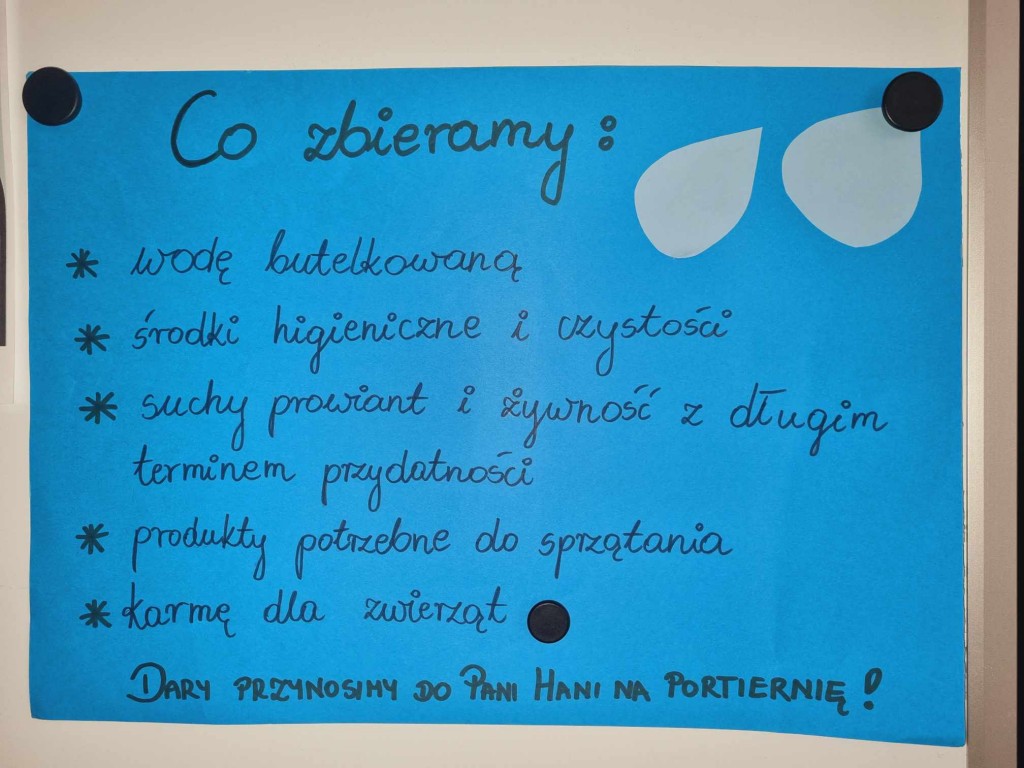 Co zbieramy:
* wodę butelkowaną
* środki higieniczne i czystości
* suchy prowiant i żywność z długim
terminem przydatności
* produkty potrzebne do sprzątania
* karmę dla zwierząt
DARY PRZYNOSIMY DO PANI HANI NA PORTIERNIĘ!